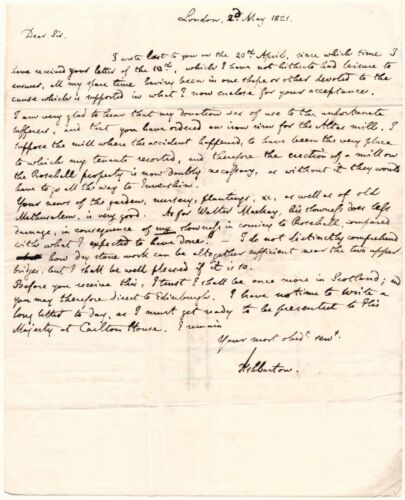 London, 2d May 1821.
Dear Sir.
I wrote last to you on the 20th April, since which time I
have received your letter of the 18th, which I have not hitherto had leisure to
answer, all my spare time having been in one shape or other devoted to the
cause which is supported in what I now enclose for your acceptance.
I am very glad to hear that my donation was of use to the unfortunate
sufferers, and that you have ordered an iron for the Altas mill. I
suppose the mill where the accident happened, to have been the very place
to which my tenants resorted, and therefore the erection of a mill on
the Rosehill property is now doubly necessary, as without it they would
have to go all the way to
Your news of the garden, nursery, plantings, &c, as well as of old
Methusalem, is very good. As for Walter Mackay, his slowness does less
damage, in consequence of my slowness in coming to Rosehill, compared
with what I expected to have done. I do not distinctly comprehend
how dry stone work can be altogether sufficient near the two upper
bridges, but I shall be well pleased if it is so.
Before you receive this, I trust I shall be once more in Scotland; and
you may therefore direct to Edinburgh. I have no time to write a
long letter to day, as I must get ready to be presented to His
Majesty at Carlton House. I remain
Your most obedt. servt.
Ashburton.